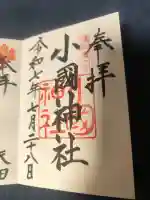 奉拝
小國神社
令和七年七月二十八日